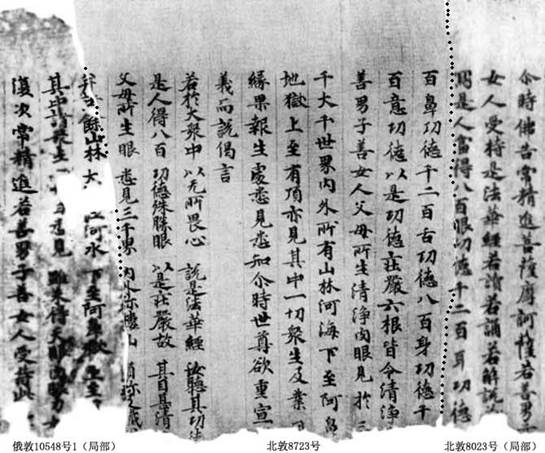 尒時佛告常精進菩薩摩訶薩若善男
女人受持是法華經若讀若誦若解說
是人當得八百眼功德千二百耳功德
百鼻功德千二百舌功德八百身功德千
百意功德以是功德莊嚴六根皆令清淨
善男子善女人父母所生清淨肉眼見於三
千大千世界內外所有山林河海下至阿鼻
地獄上至有頂亦見其中一切眾生及業
緣果報生處悉見悉知尒時世尊欲重宣
義而說偈言
若於大眾中 以无所畏心 說是法華經 汝聽其功
是人得八百 功德殊勝眼 以是莊嚴故 其目甚清
父母所生眼 悉見三千界 內外弥樓山 須弥及鐵
餘山林 大 江河水 下至阿鼻獄
其中諸眾生 悉見 雖未得天眼 肉眼力
復次常精進若善男子善女人受持此
俄敦10548号1（局部）
北敦8723号
北敦8023号（局部）